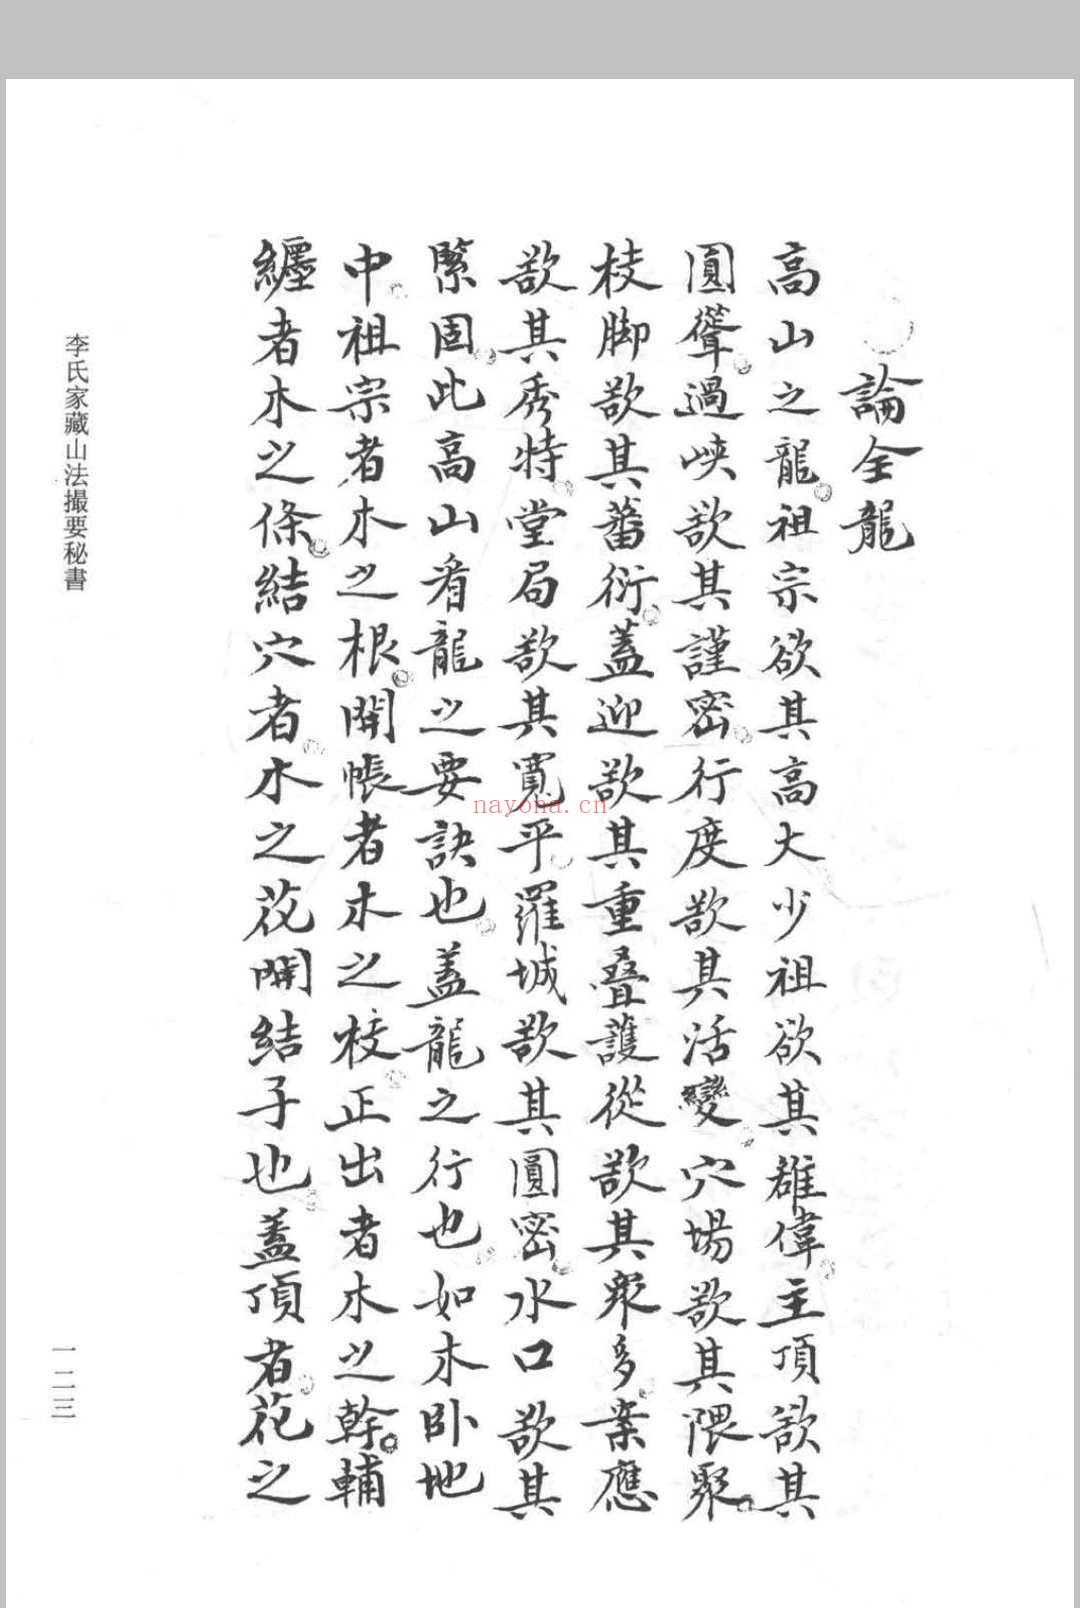 論全龍
高山之龍祖宗欲其高大少祖欲其雄偉主頂欲其
圓聳過峽欲其謹密行度欲其活變穴場欲其隈聚
枝脚欲其蕃衍蓋迎欲其重疊護從欲其眾多案應
欲其秀特堂局欲其寬平羅城欲其圓密水口欲其
緊固此高山看龍之要訣也蓋龍之行也如木卧地
中祖宗者木之根開帳者木之枝正出者木之幹輔
纏者木之條結穴者木之花開結子也蓋頂者花之
李氏家藏山法撮要秘書
一二三
nayona.cn